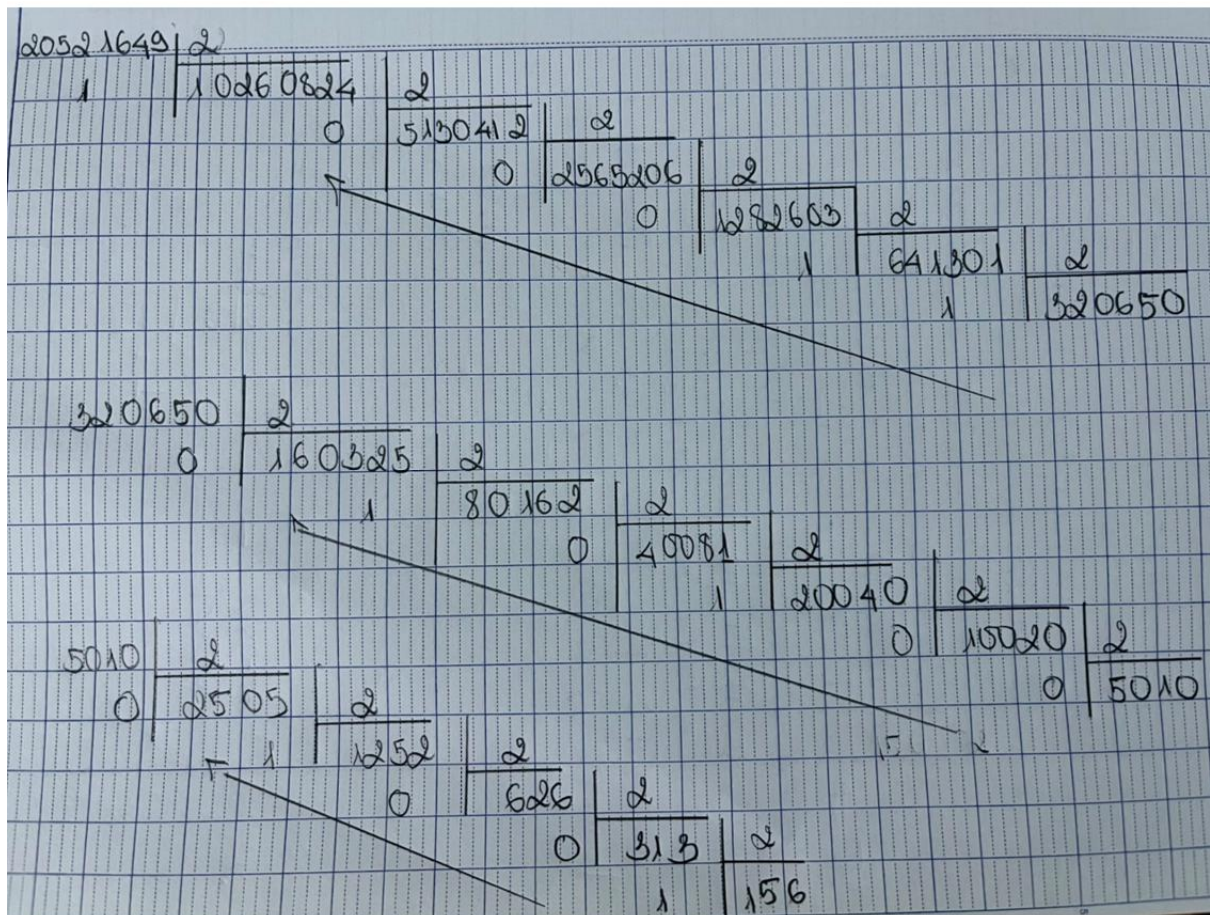 20521649 2
1 10260824 2
0 5130412 2
0 2565206 2
0 1282603 2
1 641301 2
1 320650
320650 2
0 160325 2
1 80162 2
0 40081 2
1 20040 2
0 10020 2
0 5010
5010 2
0 2505 2
1 1252 2
0 626 2
0 313 2
1 156